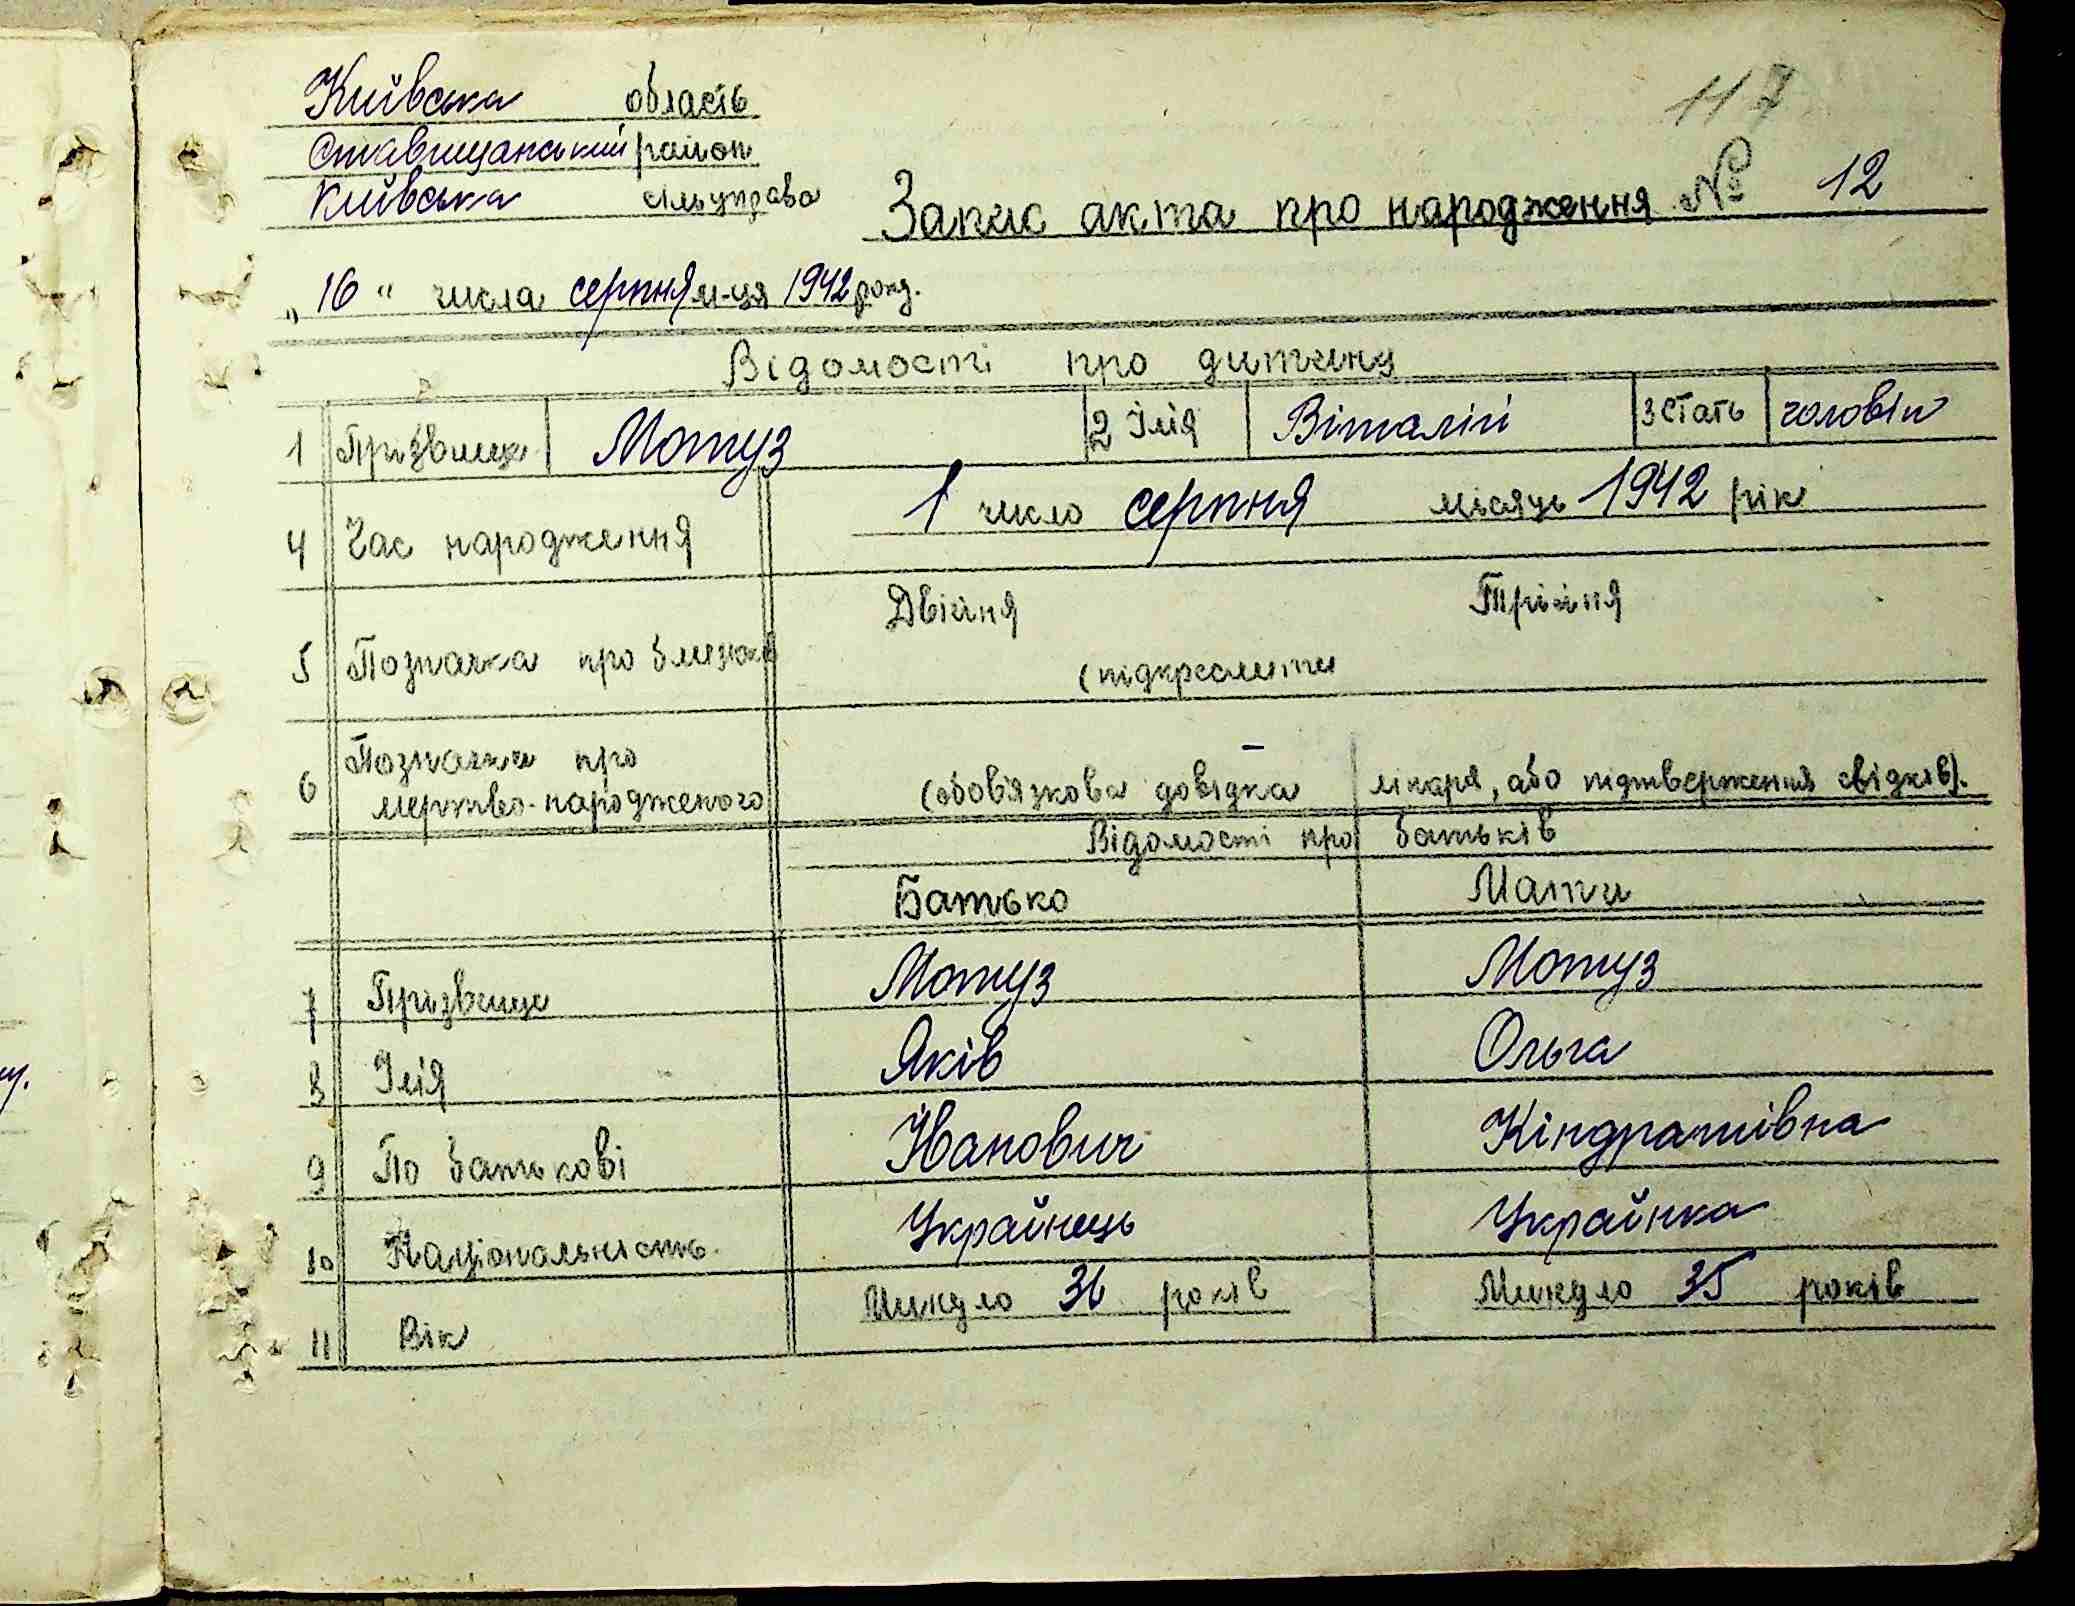 117
Київська область
Ставищанський район
Київська сільуправа
Запис акта про народження № 12
„16“ числа серпня м-ця 1942 року.
Відомості про дитину
1 Прізвище Мотуз 2 Імія Віталій 3 Стать чоловіч
4 Час народження 1 число серпня місяць 1942 рік
Двійня Трійня
5 Позначка про близнюків
(підкреслити
6 Позначки про мертво-народженого –
(обов'язкова довідка лікаря, або підтвердження свідків).
Відомості про батьків
Батько Мати
7 Прізвище Мотуз Мотуз
8 Імія Яків Ольга
9 По батькові Іванович Кіндратівна
10 Національність Українець Українка
11 Вік Минуло 36 років Минуло 35 років